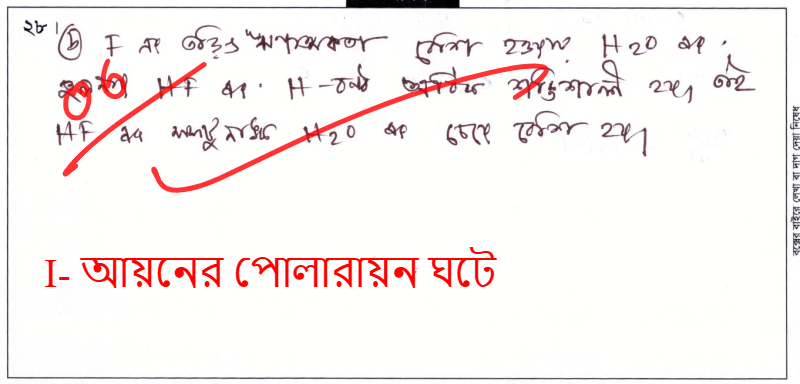 ২৮। (b) F এর তড়িৎ ঋণাত্মকতা বেশি হওয়ায় H2O এর
তুলনায় HF এর H-বন্ধন অধিক শক্তিশালী হয়, তাই
HF এর H2O এর চেয়ে বেশি হয়।
I- আয়নের পোলারায়ন ঘটে
বক্সের বাইরে লেখা বা দাগ দেয়া নিষেধ